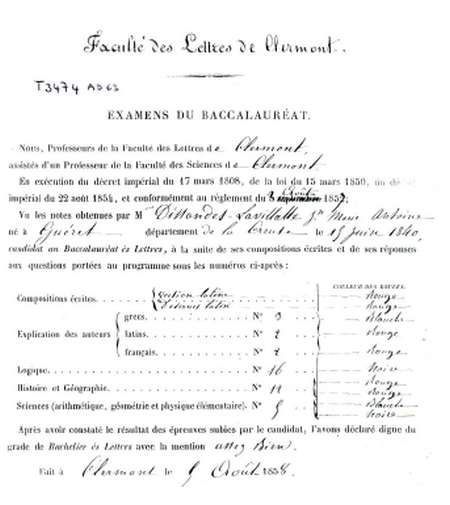 Faculté des Lettres de Clermont.
T3474 AD63
EXAMENS DU BACCALAURÉAT.
Nous, Professeurs de la Faculté des Lettres de Clermont,
assistés d'un Professeur de la Faculté des Sciences de Clermont
En exécution du décret impérial du 17 mars 1808, de la loi du 15 mars 1850, du dé-
impérial du 22 août 1854, et conformément au règlement du Août 185
Vu les notes obtenues par M Antoine
né à Guéret département de la Creuse le 15 Juin 1840,
candidat au Baccalauréat ès Lettres, à la suite de ses compositions écrites et de ses réponses
aux questions portées au programme sous les numéros ci-après :
COULEUR DES BOULES.
Compositions écrites. version latine Rouge
Discours latin Rouge
Explication des auteurs grecs. N° 3 Blanche
latins. N° 2 Rouge
français. N° 2 Rouge
Logique. N° 16 Noire
Histoire et Géographie. N° Rouge
Rouge
Sciences (arithmétique, géométrie et physique élémentaire). N° 5 Blanche
Noire
Après avoir constaté le résultat des épreuves subies par le candidat, l'avons déclaré digne du
grade de Bachelier ès Lettres avec la mention assez Bien.
Fait à Clermont le 5 Août 1858.